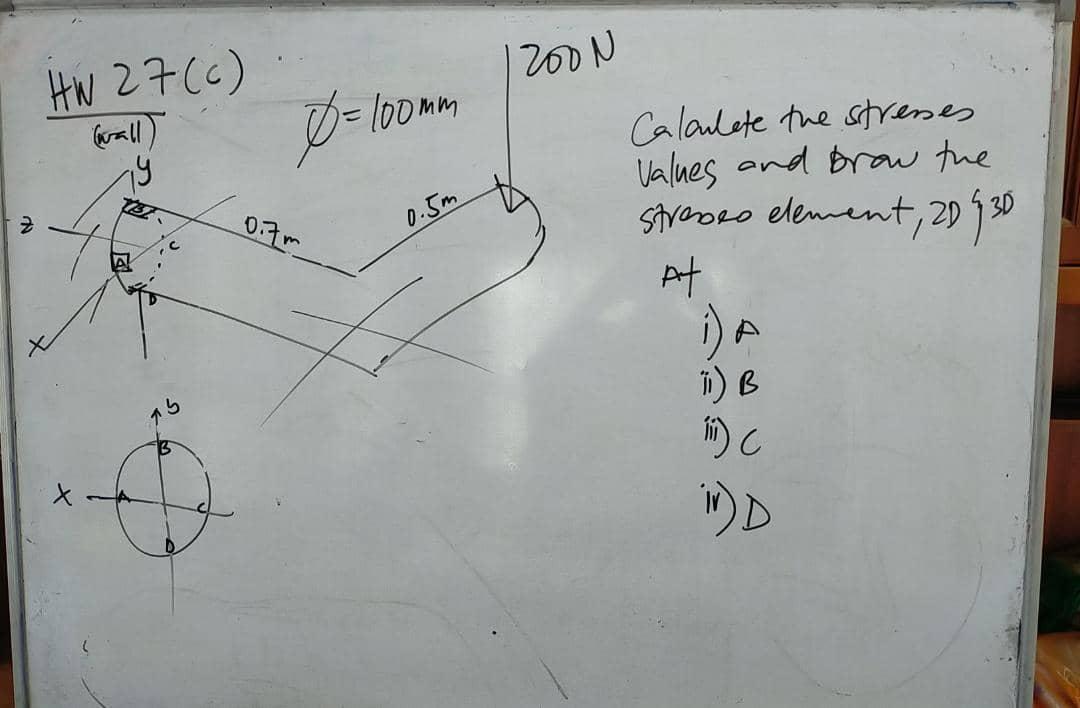 HW 27(c)
(wall)
Ø = 100mm
1200N
y
z
0.7m
0.5m
A
B
C
D
x
Calculate the stresses
Values and draw the
stresses element, 2D & 3D
At
i) A
ii) B
iii) C
iv) D
y
B
x
A
C
D